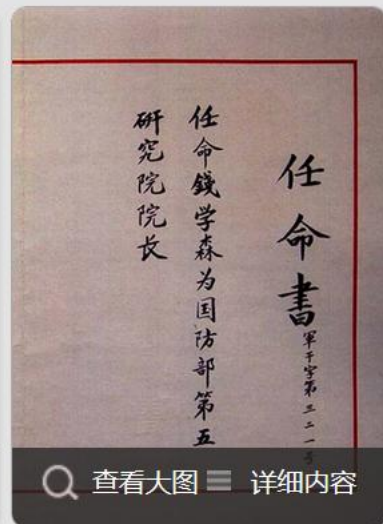 任命書
軍干字第三二一号
任命錢学森为国防部第五
研究院院长
查看大图
详细内容